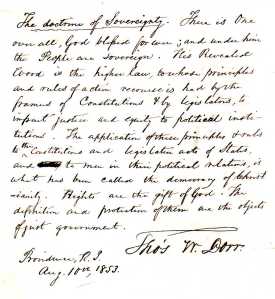 The doctrine of Sovereignty. There is One
over all, God blessed for ever; and under him
the People are Sovereign. His Revealed
Word is the higher law, to whose principles
and rules of action recourse is had by the
framers of Constitutions & by legislators, to
impart justice and equity to political insti-
tutions. The application of these principles & rules
to the Constitutions and legislative acts of States,
and to men in their political relations, is
what has been called the democracy of Christ-
ianity. Rights are the gift of God. The
definition and protection of them are the objects
of just government.
Tho's W. Dorr.
Providence, R. I.
Aug. 10th 1853.